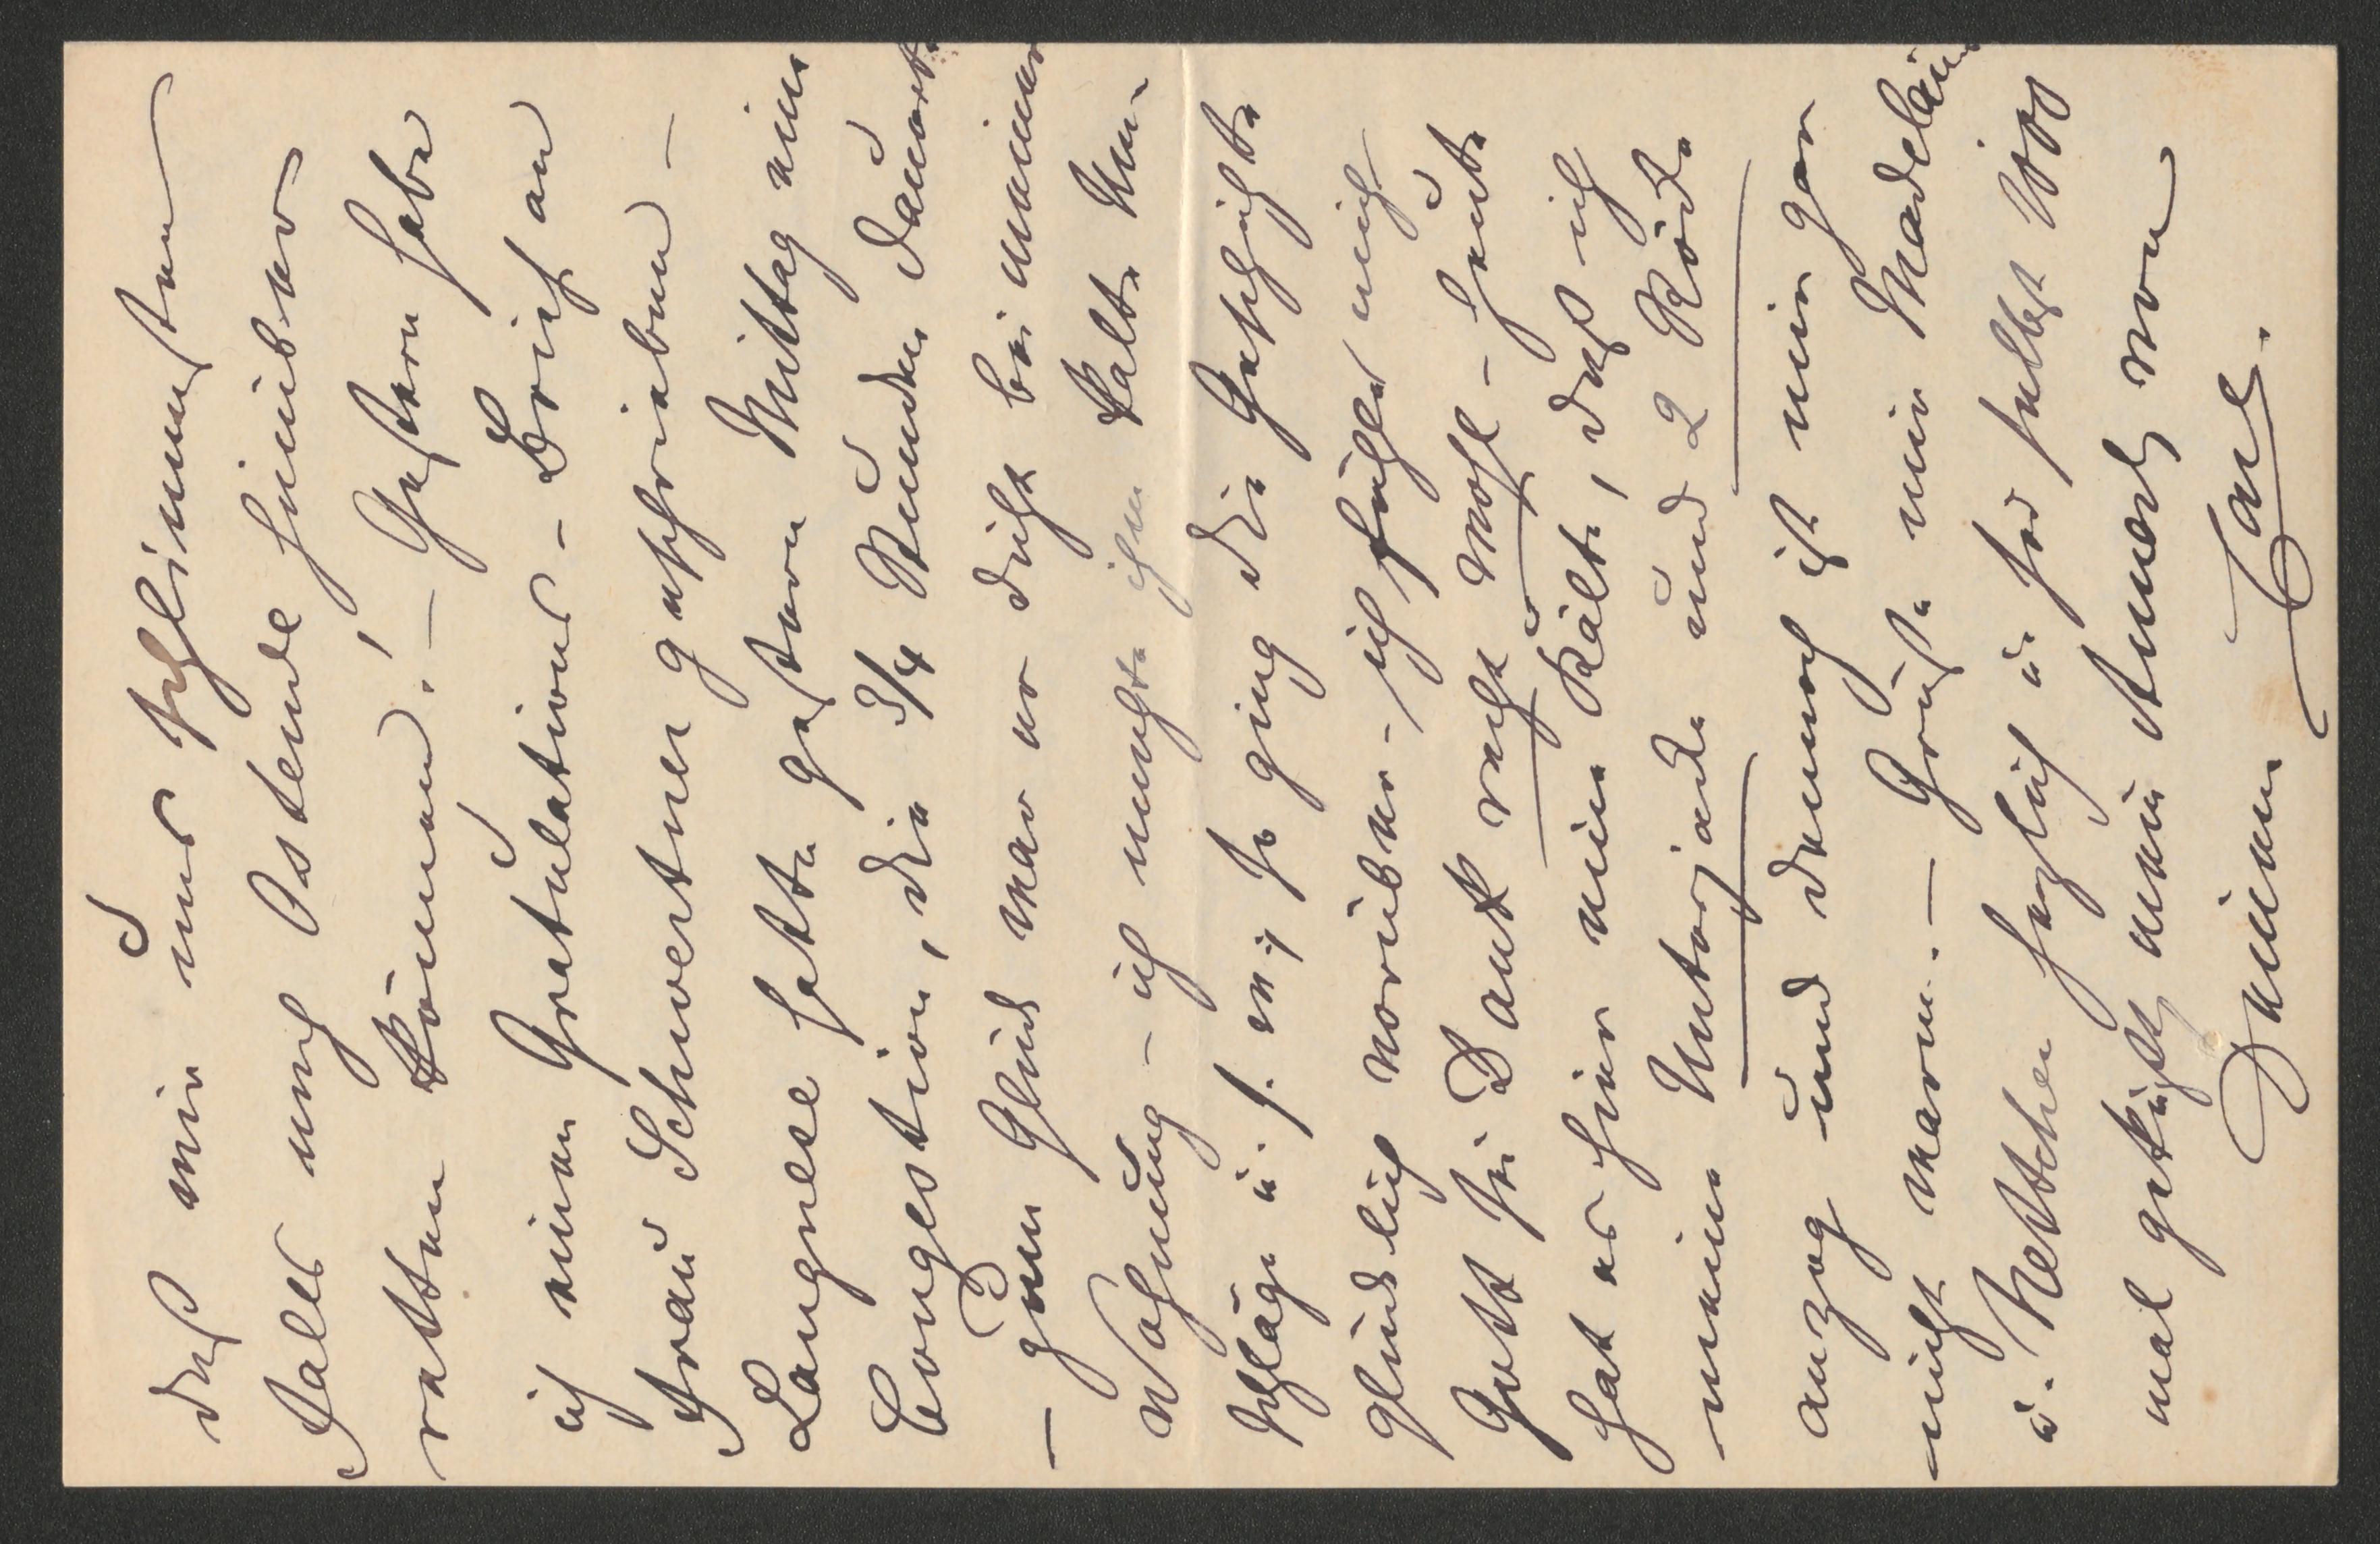 daß wir uns schlimmsten
Falls nach Ostende hinüber
retten können! – Gestern habe
ich einen Gratulations-Brief an
Frau Schwertner geschrieben –
Langnese hatte gestern Mittag eine
Congestion, die 3/4 Stunden dauerte
– zum Glück war er dicht bei meiner
Wohnung – ich machte ihm kalte Um-
schläge u. s. w; so ging die Geschichte
glücklich vorüber – ich fühle mich
Gott sei Dank recht wohl – heute
hat es hier eine Kälte, daß ich
meine Unterjacke und 2 Röcke
anzog und dennoch ist mir gar
nicht warm. – Grüße mir Madelaine
u. Nettchen herzlich u. sei selbst 1000
mal geküßt, mein Engel, von
Deinem Carl.